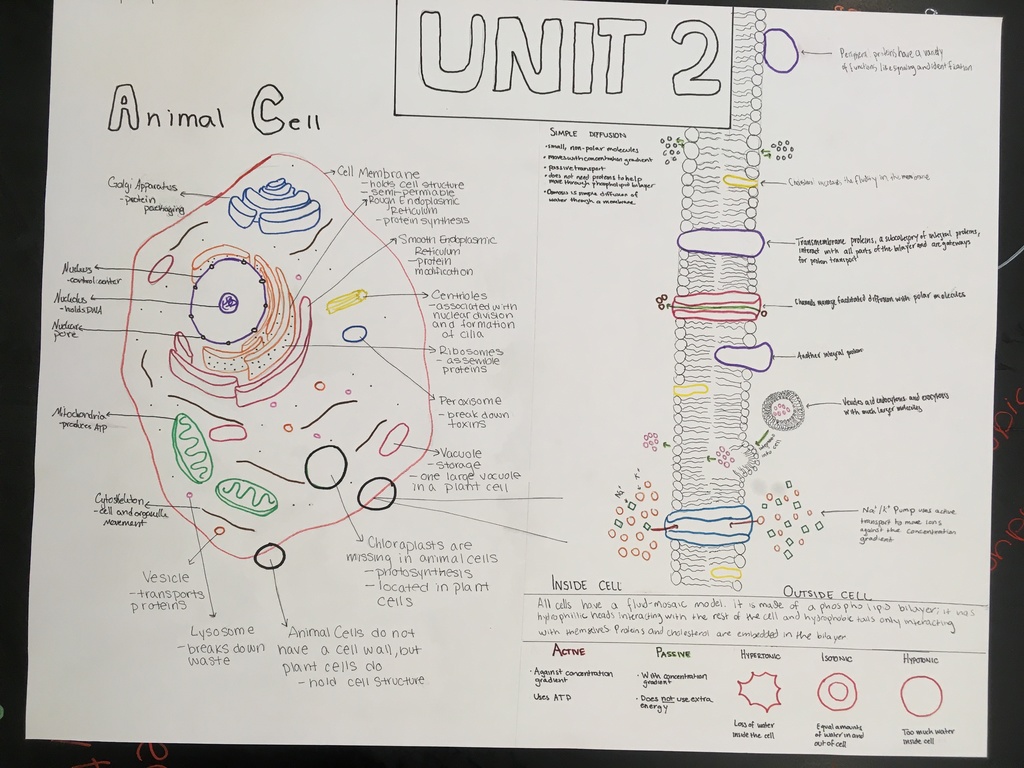 UNIT 2
Animal Cell
Golgi Apparatus
- protein
packaging
Nucleus
- control center
Nucleolus
- holds DNA
Nuclear
pore
Mitochondria
- produces ATP
Cytoskeleton
- cell and organelle
movement
Vesicle
- transports
proteins
Lysosome
- breaks down
waste
Animal Cells do not
have a cell wall, but
plant cells do
- hold cell structure
Chloroplasts are
missing in animal cells
- photosynthesis
- located in plant
cells
Cell Membrane
- holds cell structure
- semi-permable
Rough Endoplasmic
Reticulum
- protein synthesis
Smooth Endoplasmic
Reticulum
- protein
modification
Centrioles
- associated with
nuclear division
and formation
of cilia
Ribosomes
- assemble
proteins
Peroxisome
- break down
toxins
Vacuole
- storage
- one large vacuole
in a plant cell
Simple Diffusion
• small, non-polar molecules
• moves with concentration gradient
• passive transport
• does not need proteins to help
move through phospholipid bilayer
• Osmosis is simple diffusion of
water through a membrane
proteins have a variety
of functions, like signaling and identification
the fluidity in the membrane
Transmembrane proteins, a subcategory of integral proteins,
interact with all parts of the bilayer and are gateways
for protein transport
Channels manage facilitated diffusion with polar molecules
Another integral protein
Vesicles aid endocytosis and exocytosis
with much larger molecules
Na⁺
K⁺
Na⁺/K⁺ Pump uses active
transport to move ions
against the concentration
gradient
Inside Cell
Outside Cell
All cells have a fluid-mosaic model. It is made of a phospho lipid bilayer; it has
hydrophilic heads interacting with the rest of the cell and hydrophobic tails only interacting
with themselves Proteins and cholesterol are embedded in the bilayer
Active
• Against concentration
gradient
Uses ATP
Passive
• With concentration
gradient
• Does not use extra
energy
Hypertonic
Loss of water
inside the cell
Isotonic
Equal amounts
of water in and
out of cell
Hypotonic
Too much water
inside cell